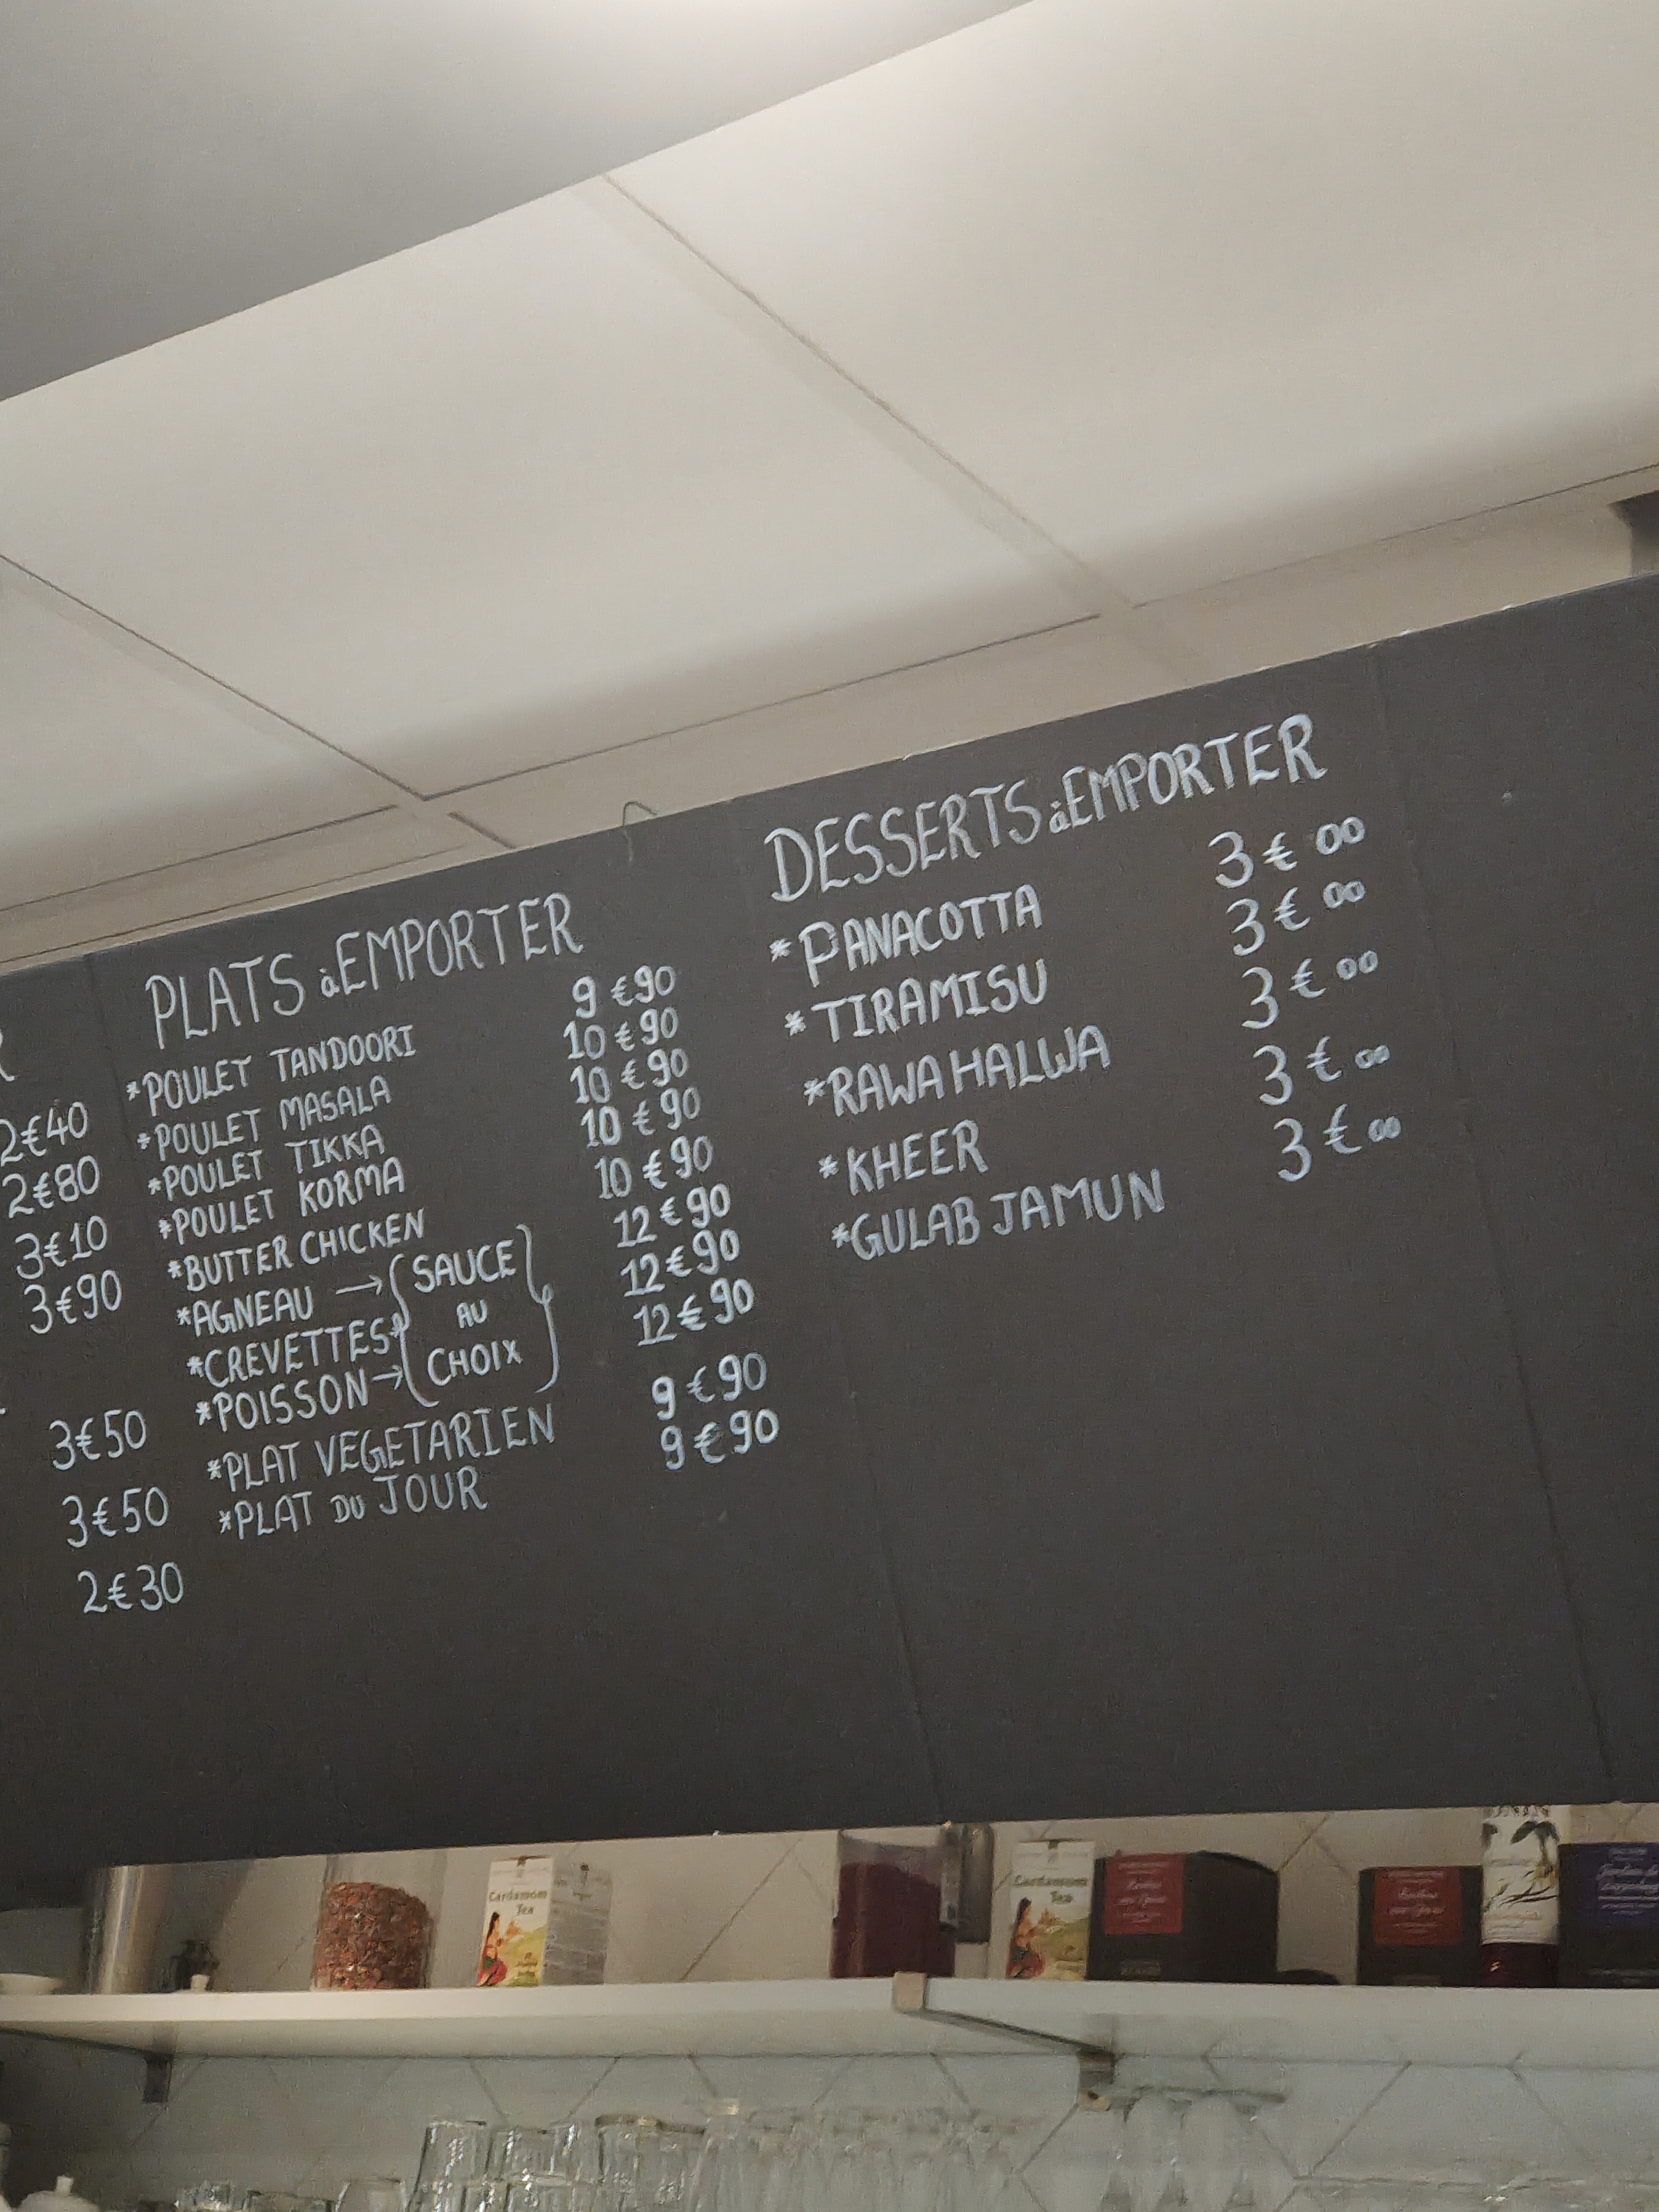 2€40
2€80
3€10
3€90
3€50
3€50
2€30
PLATS à EMPORTER
*POULET TANDOORI 9€90
*POULET MASALA 10€90
*POULET TIKKA 10€90
*POULET KORMA 10€90
*BUTTER CHICKEN 10€90
*AGNEAU → SAUCE 12€90
*CREVETTES → AU 12€90
*POISSON → CHOIX 12€90
*PLAT VEGETARIEN 9€90
*PLAT DU JOUR 9€90
DESSERTS à EMPORTER
*PANACOTTA 3€00
*TIRAMISU 3€00
*RAWA HALWA 3€00
*KHEER 3€00
*GULAB JAMUN 3€00
Cardamom
Tea
Cardamom
Tea